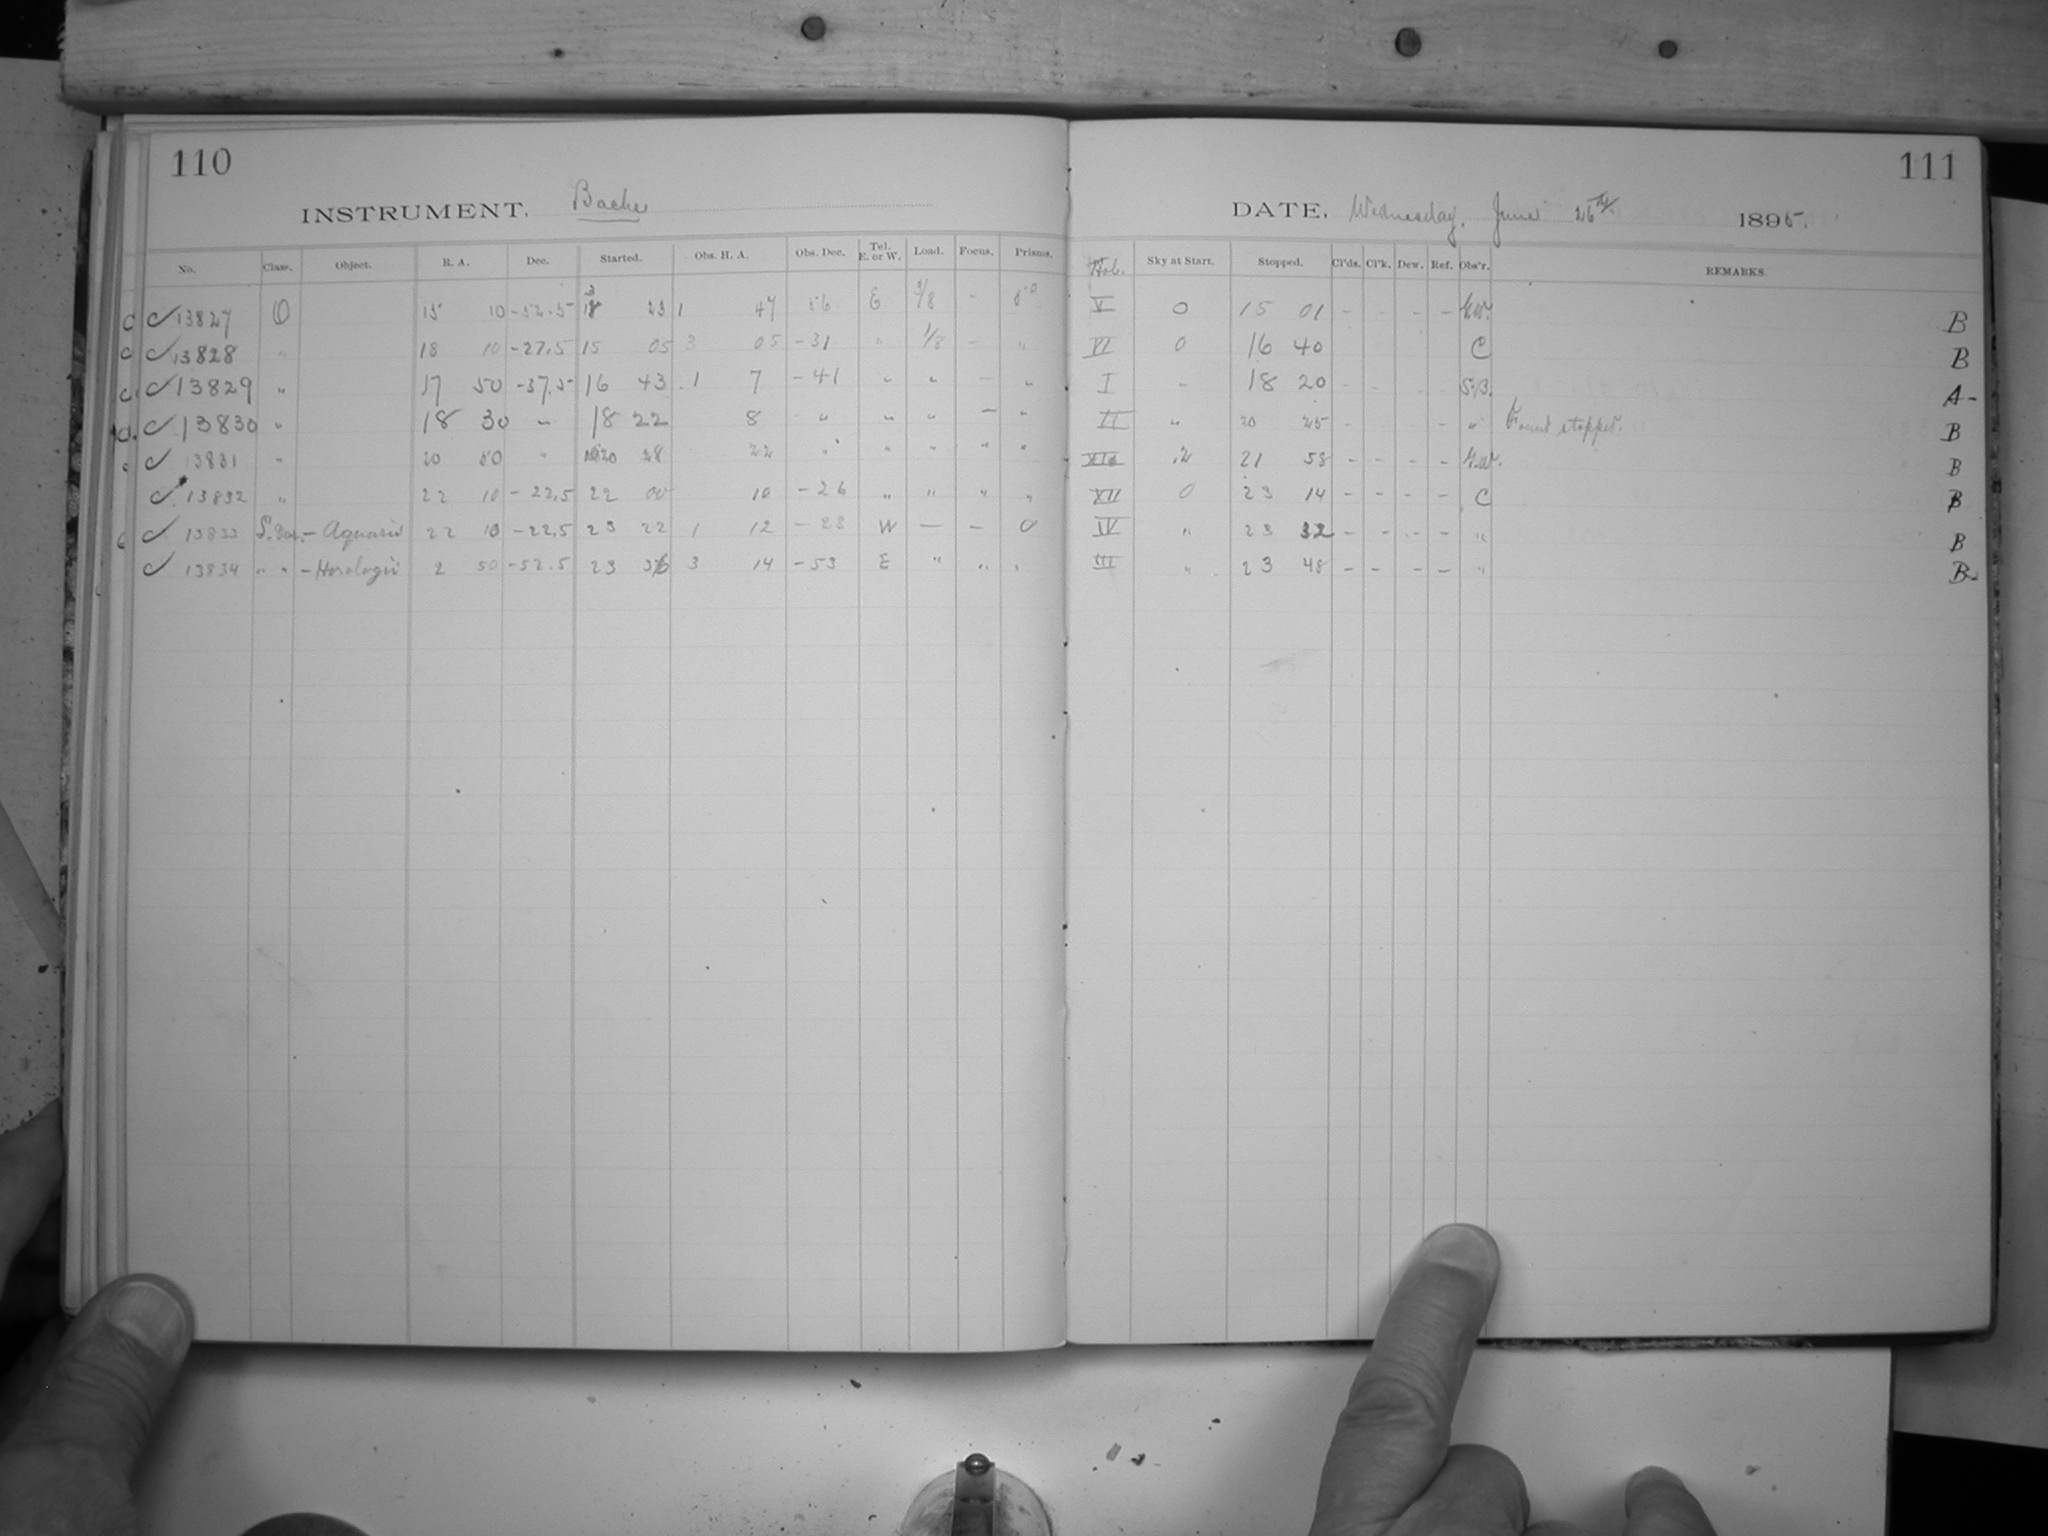 110
INSTRUMENT, Bache
No. Class. Object. R. A. Dec. Started. Obs. H. A. Obs. Dec. Tel. E. or W. Load. Focus. Prisms.
13827 O 15 10 -52.5 13 23 1 47 56 E 1/8 -
13828 " 18 10 -22.5 15 05 3 05 -31 " 1/8 - "
13829 " 17 50 -37.5 16 43 1 7 -41 " " - "
13830 " 18 30 " 18 22 8 " " " - "
13831 " 20 50 " 20 28 22 " " " " "
13832 " 22 10 -22.5 22 00 10 -26 " " " "
13833 - Aquarii 22 10 -22.5 23 22 1 12 -23 W - - 0
13834 " " - Horologii 2 50 -52.5 23 36 3 14 -53 E " " "
111
DATE, Wednesday, June 26th 1895.
Sky at Start. Stopped. Cl'ds. Cl'k. Dew. Ref. Obs'r. REMARKS.
V 0 15 01 - - - - B
VI 0 16 40 C B
I " 18 20 - - - - S.B. A-
II " 20 25 - " stopped. B
.2 21 58 - - - - B
VII 0 23 14 - - - - C B
IV " 23 32 - - - - " B
III " 23 48 - - - - " B-